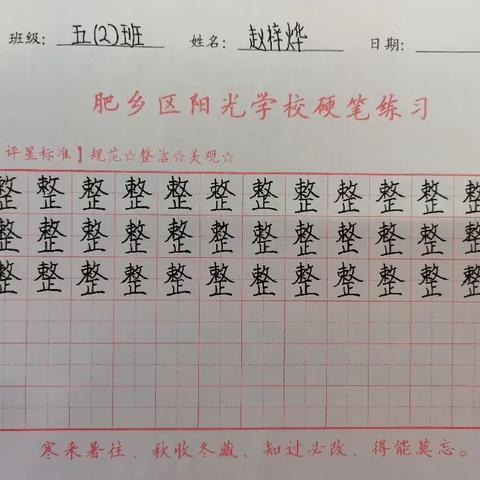 班级: 五(2)班 姓名: 赵梓烨 日期:
肥乡区阳光学校硬笔练习
评星标准】规范☆整洁☆美观☆
整整整整整整整整整整整整
整整整整整整整整整整整整
整整整整整整整整整整整整
寒来暑往、秋收冬藏、知过必改、得能莫忘。